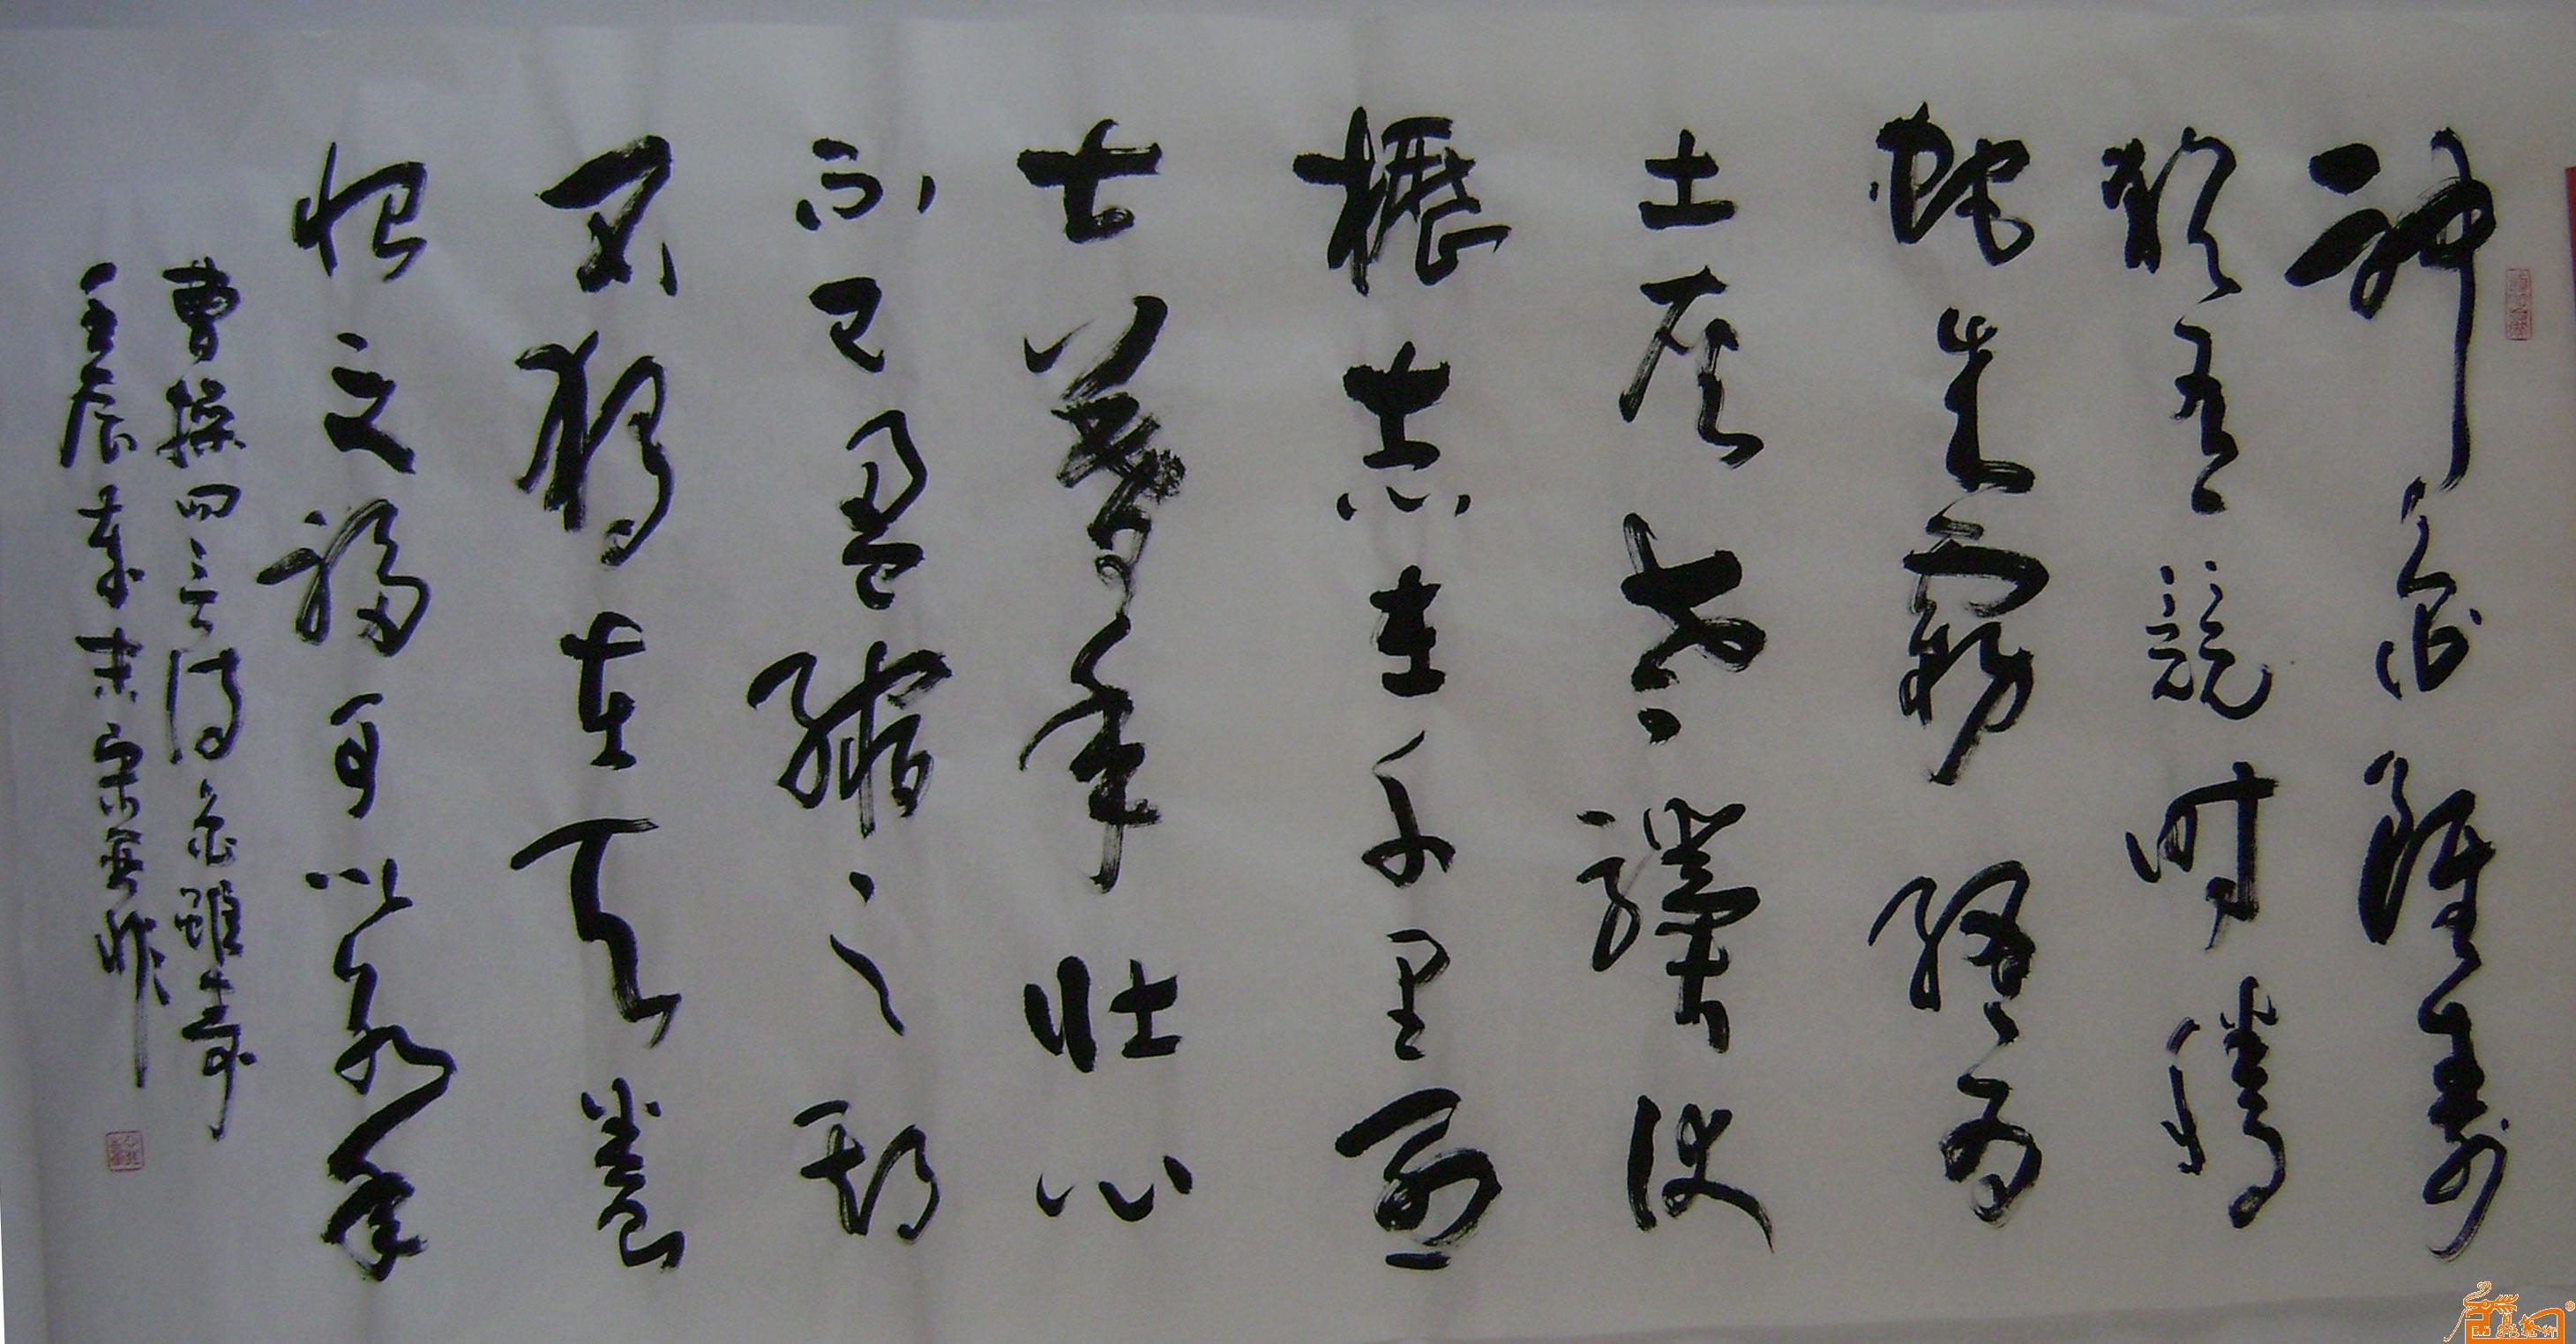 神龜雖壽
猶有競時騰
蛇乘霧終為
土灰老驥伏
櫪志在千里烈
士暮年壯心
不已盈縮之期
不獨在天養
怡之福可以永年
曹操四言詩龜雖壽
壬辰春末